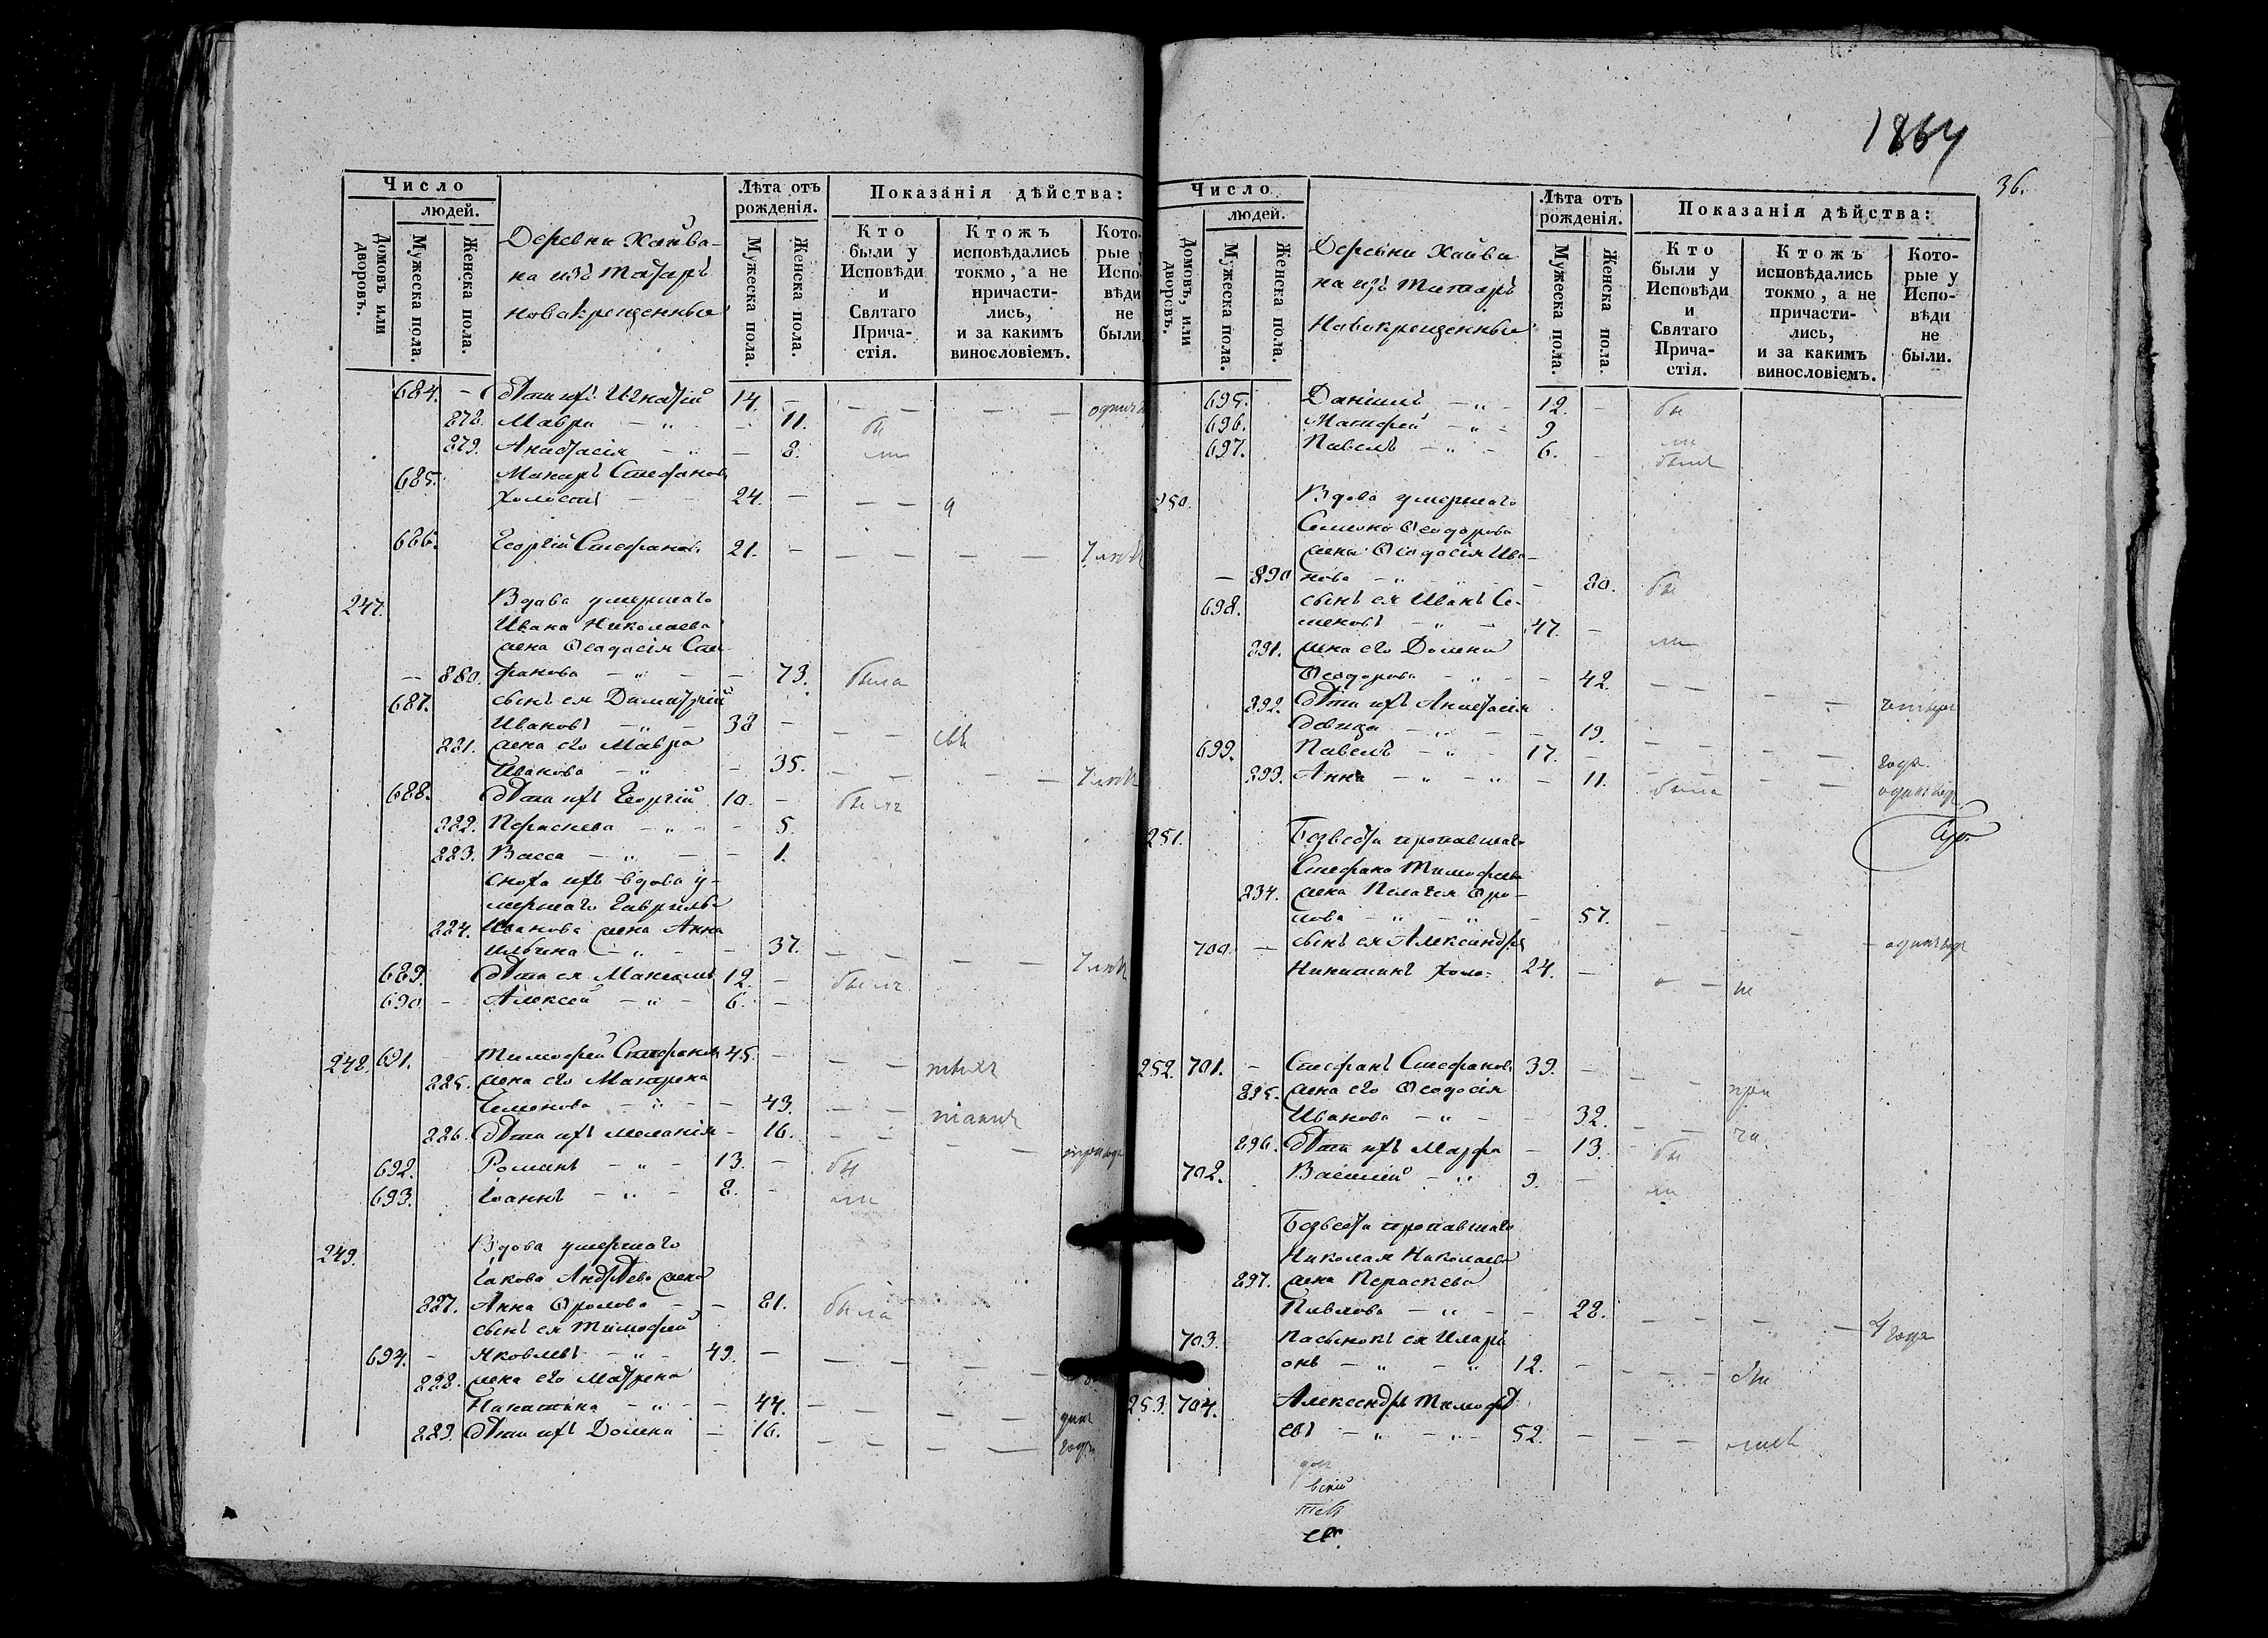 Число
людей.
Домовъ или дворовъ.
Мужеска пола.
Женска пола.
Деревни Хайва-
на изъ татаръ
новокрещенные
Лѣта отъ рожденія.
Мужеска пола.
Женска пола.
Показанія дѣйства:
Кто были у Исповѣди и Святаго Прича- стія.
Ктожъ исповѣдались токмо, а не причасти- лись, и за какимъ винословіемъ.
Кото- рые Испо- вѣди не были
684. – дѣти ихъ Игнатій 14. –
878. Мавра – „ – 11. бы
879. Анастасія – „ – 8. ли
685. Макаръ Стефановъ
холостъ – 24. –
686. Георгій Стефановъ 21. –
247. Вдова умершаго
Ивана Николаева
жена Ѳеодосія Сте-
– 880. фанова – „ – – 73. была
687. сынъ ея Димитрій
Ивановъ – „ 38 –
881. жена его Мавра
Иванова – „ – 35.
688. дѣти ихъ Георгій 10. – были
882. Параскева – „ – 5.
883. Васса – „ – – 1.
сноха ихъ вдова у-
мершаго Гавріила
884. Иванова жена Анна
Ильина – „ – 37.
689. дѣти ея 12. – были
690 – Алексей – „ – 6. –
248. 691. Тимофей Стефановъ 45. –
885. жена его Матрена
Семенова – „ – 43.
886. дѣти ихъ Меланія – 16.
692. Романъ – „ – 13. – бы
693. Іоаннъ – „ – 8. – ли
249. Вдова умершаго
Іакова Андрѣева жена
887. Анна Фролова – – 81. была
сынъ ея Тимофей
694. – Яковлевъ – „ – 49. –
888. жена его Матрена
Никитина – „ – 44.
889. дѣти ихъ Домна – 16.
1864
36.
Число
людей.
Домовъ, или дворовъ.
Мужеска пола.
Женска пола.
Деревни Хайва
на изъ татаръ
Новокрещенные
Лѣта отъ рожденія.
Мужеска пола.
Женска пола.
Показанія дѣйства:
Кто были у Исповѣди и Святаго Прича- стія.
Ктожъ исповѣдались токмо, а не причасти- лись, и за какимъ винословіемъ.
Кото- рые у Испо- вѣди не были.
695. Даніилъ – „ – 12. – бы
696. Матфей – „ – 9 ли
697. Павелъ – „ – 6. –
250. Вдова умершаго
Семена Ѳеодорова
жена Ѳеодосія Ива-
– 890 нова – „ – 80. бы
698. сынъ ея Иванъ Се-
меновъ – „ – 47. –
891. жена его Домна ли
Ѳеодорова – „ – – 42.
892. дѣти ихъ Анастасія
девица – „ – 19.
699. Павелъ – „ – 17. – года
893. Анна – „ – „ – 11. была
251. Безвѣсти пропавшаго
Стефана Тимофеева
894. жена Пелагея Фро-
лова – „ – „ – 57.
700 – сынъ ея Александръ
Никитинъ холо- 24. –
252. 701. – Стефанъ Стефановъ 39. –
895. жена его Ѳеодосія при
Иванова – „ – – 32.
896. дѣти ихъ Марфа – 13. бы
702. Василій – „ 9. – ли
Безвѣсти пропавшаго
Николая Николаева
897. жена Параскева
Павлова – „ – – 28.
703. пасынокъ ея Иларі
онъ – „ – „ 12. –
253. 704. Александръ Тимофѣ
евъ – „ – „ – 52. –